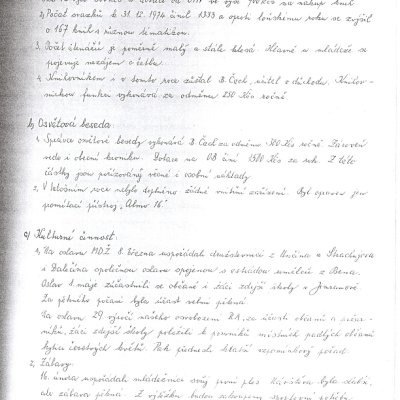 2) Počet svazků k 31.12.1974 činil 1333 a oproti loňskému roku se zvýšil
o 167 knih s různou tématikou.
3) Počet čtenářů je poměrně malý a stále klesá. Hlavně u mládeže se
projevuje nezájem o četbu.
4) Knihovníkem i v tomto roce zůstal B. Čech, učitel v důchodu. Knihov-
nickou funkci vykonává za odměnu 250 Kčs ročně.
b) Osvětová beseda:
1. Správce osvětové besedy vykonává B. Čech za odměnu Kčs ročně. Zároveň
vede i obecní kroniku. Dotace na OB činí 1500 Kčs za rok. Z této
částky jsou pořizovány věcné i osobní náklady.
2. V letošním roce nebylo doplněno žádné vnitřní zařízení. Byl opraven jen
promítací přístroj „Almo 16."
c) Kulturní činnost:
1) Na oslavu MDŽ 8. března uspořádali družstevníci z Unčína a Strachujova
s Dalečína společnou oslavu spojenou s estrádou umělců z Brna.
Oslav 1. máje zúčastnili se občané i žáci zdejší školy v Jimramově.
Za pěkného počasí byla účast velmi pěkná.
Na oslavu 29. výročí našeho osvobození RA, za účasti občanů a svazar-
, žáci zdejší školy položili k pomníku místních padlých občanů
kytici čerstvých květů. Pak přednesli krátký vzpomínkový pořad.
2) Zábavy:
16. února uspořádali mládežníci svůj první ples. Návštěva byla slabá,
ale zábava pěkná. Z výtěžku budou zakoupeny sportovní potřeby.